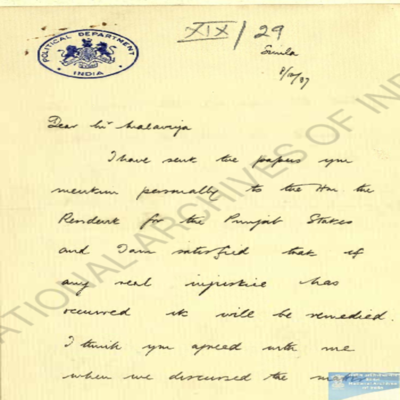 XIX/29
POLITICAL DEPARTMENT
INDIA
Simla
Dear Mr Malaviya
I have sent the papers you
mention personally to the Hon the
Resident for the Punjab States
and I am satisfied that if
any real injustice has
occurred it will be remedied.
I think you agreed with me
when we discussed the matter
NATIONAL ARCHIVES OF IND